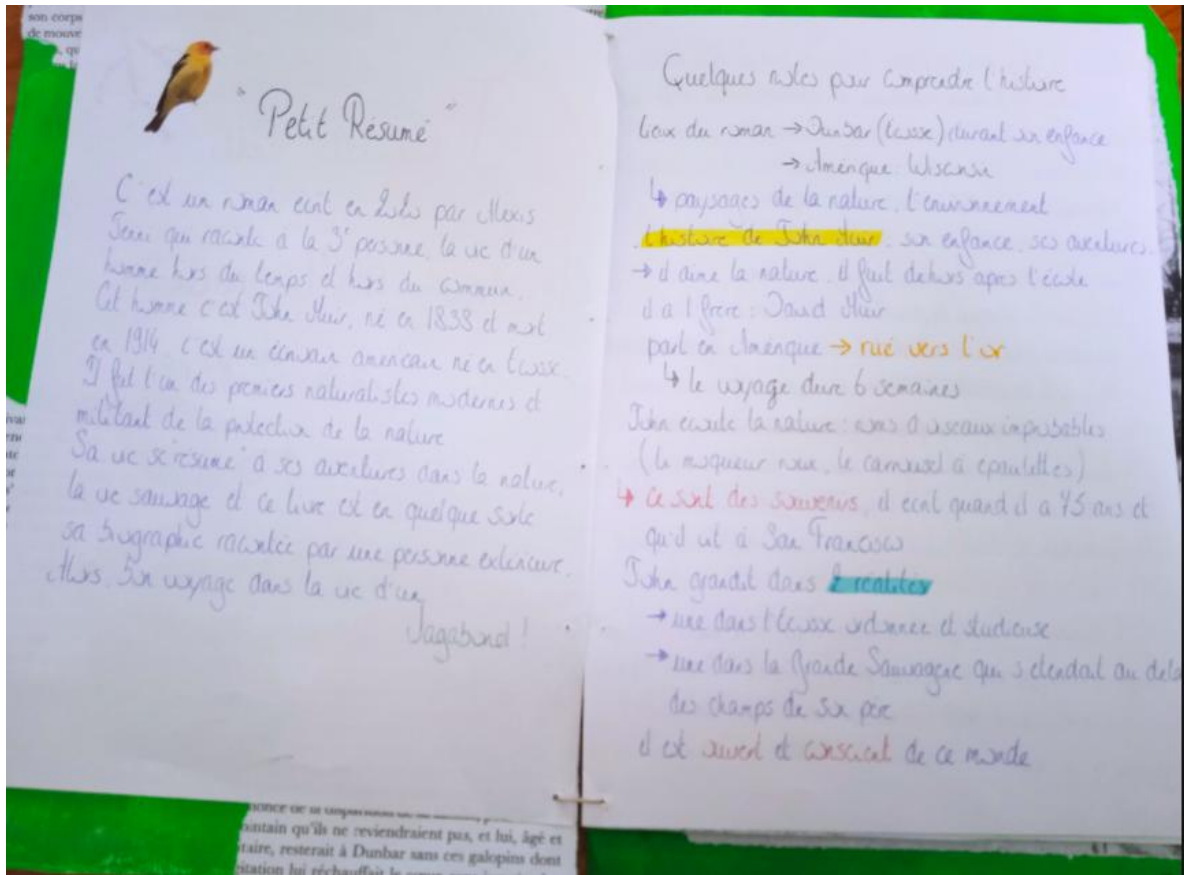 son corps
de mouve
" Petit Résumé "
C'est un roman écrit en 2020 par Alexis
Jenni qui raconte à la 3e personne, la vie d'un
homme hors du temps et hors du commun.
Cet homme c'est John Muir, né en 1838 et mort
en 1914 c'est un écrivain américain né en Ecosse.
Il fut l'un des premiers naturalistes modernes et
militant de la protection de la nature
Sa vie se "résume" à ses aventures dans la nature,
la vie sauvage et ce livre est en quelque sorte
sa biographie racontée par une personne extérieure.
Alors, bon voyage dans la vie d'un
Vagabond !
Quelques notes pour comprendre l'histoire
Lieux du roman → Dunbar (Ecosse) durant son enfance
→ Amérique Wisconsin
↳ paysages de la nature, l'environnement
l'histoire de John Muir, son enfance, ses aventures.
→ il aime la nature, il fuit dehors après l'école
il a 1 frère : David Muir
part en Amérique → rué vers l'or
↳ le voyage dure 6 semaines
John écoute la nature : noms d'oiseaux improbables
(le moqueur roux, le carouge à épaulettes)
↳ ce sont des souvenirs, il écrit quand il a 75 ans et
qu'il vit à San Francisco
John grandit dans 2 réalités
→ une dans l'Ecosse ordonnée et studieuse
→ une dans la Grande Sauvagerie qui s'étendait au delà
des champs de son père
il est ouvert et conscient de ce monde
ntain qu'ils ne reviendraient pas, et lui, âgé et
itaire, resterait à Dunbar sans ces galopins dont